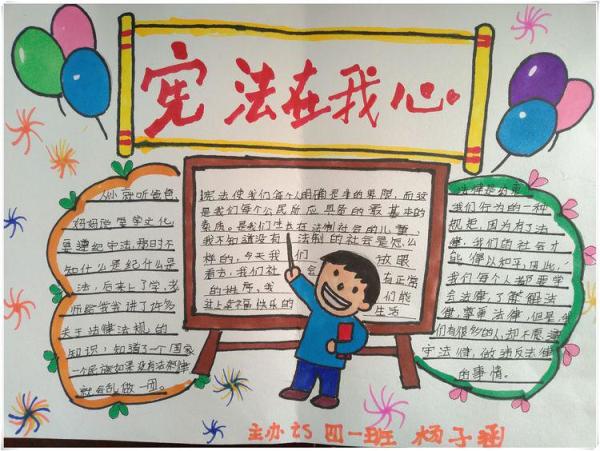 宪法在我心
从小就听爸爸
妈妈说要学文化
要遵纪守法,那时不
知什么是纪什么是
法,后来上了学,老
师给我讲了许多
关于法律法规的
知识,知道了一个国家
一个民族如果没有法和律
就会乱做一团。
宪法使我们每个人明确是非的界限,而这
是我们每个公民所应具备的最基本的
素质。是我们生长在法制社会的儿童,
我不知道没有法制的社会是怎么
样的,今天我们放眼
看去,我们社会有正常
的秩序,我们能
过上幸福快乐的生活
法律是约束
我们行为的一种
规把,因为有了法
律,我们的社会才
能得以和平,因此,
我们每个人都要学
会法律,了解法
律,尊重法律,但是,
们有很多的人,却不愿遵
守法律,做违反法律
的事情。
主办 25 四一班 杨子涵